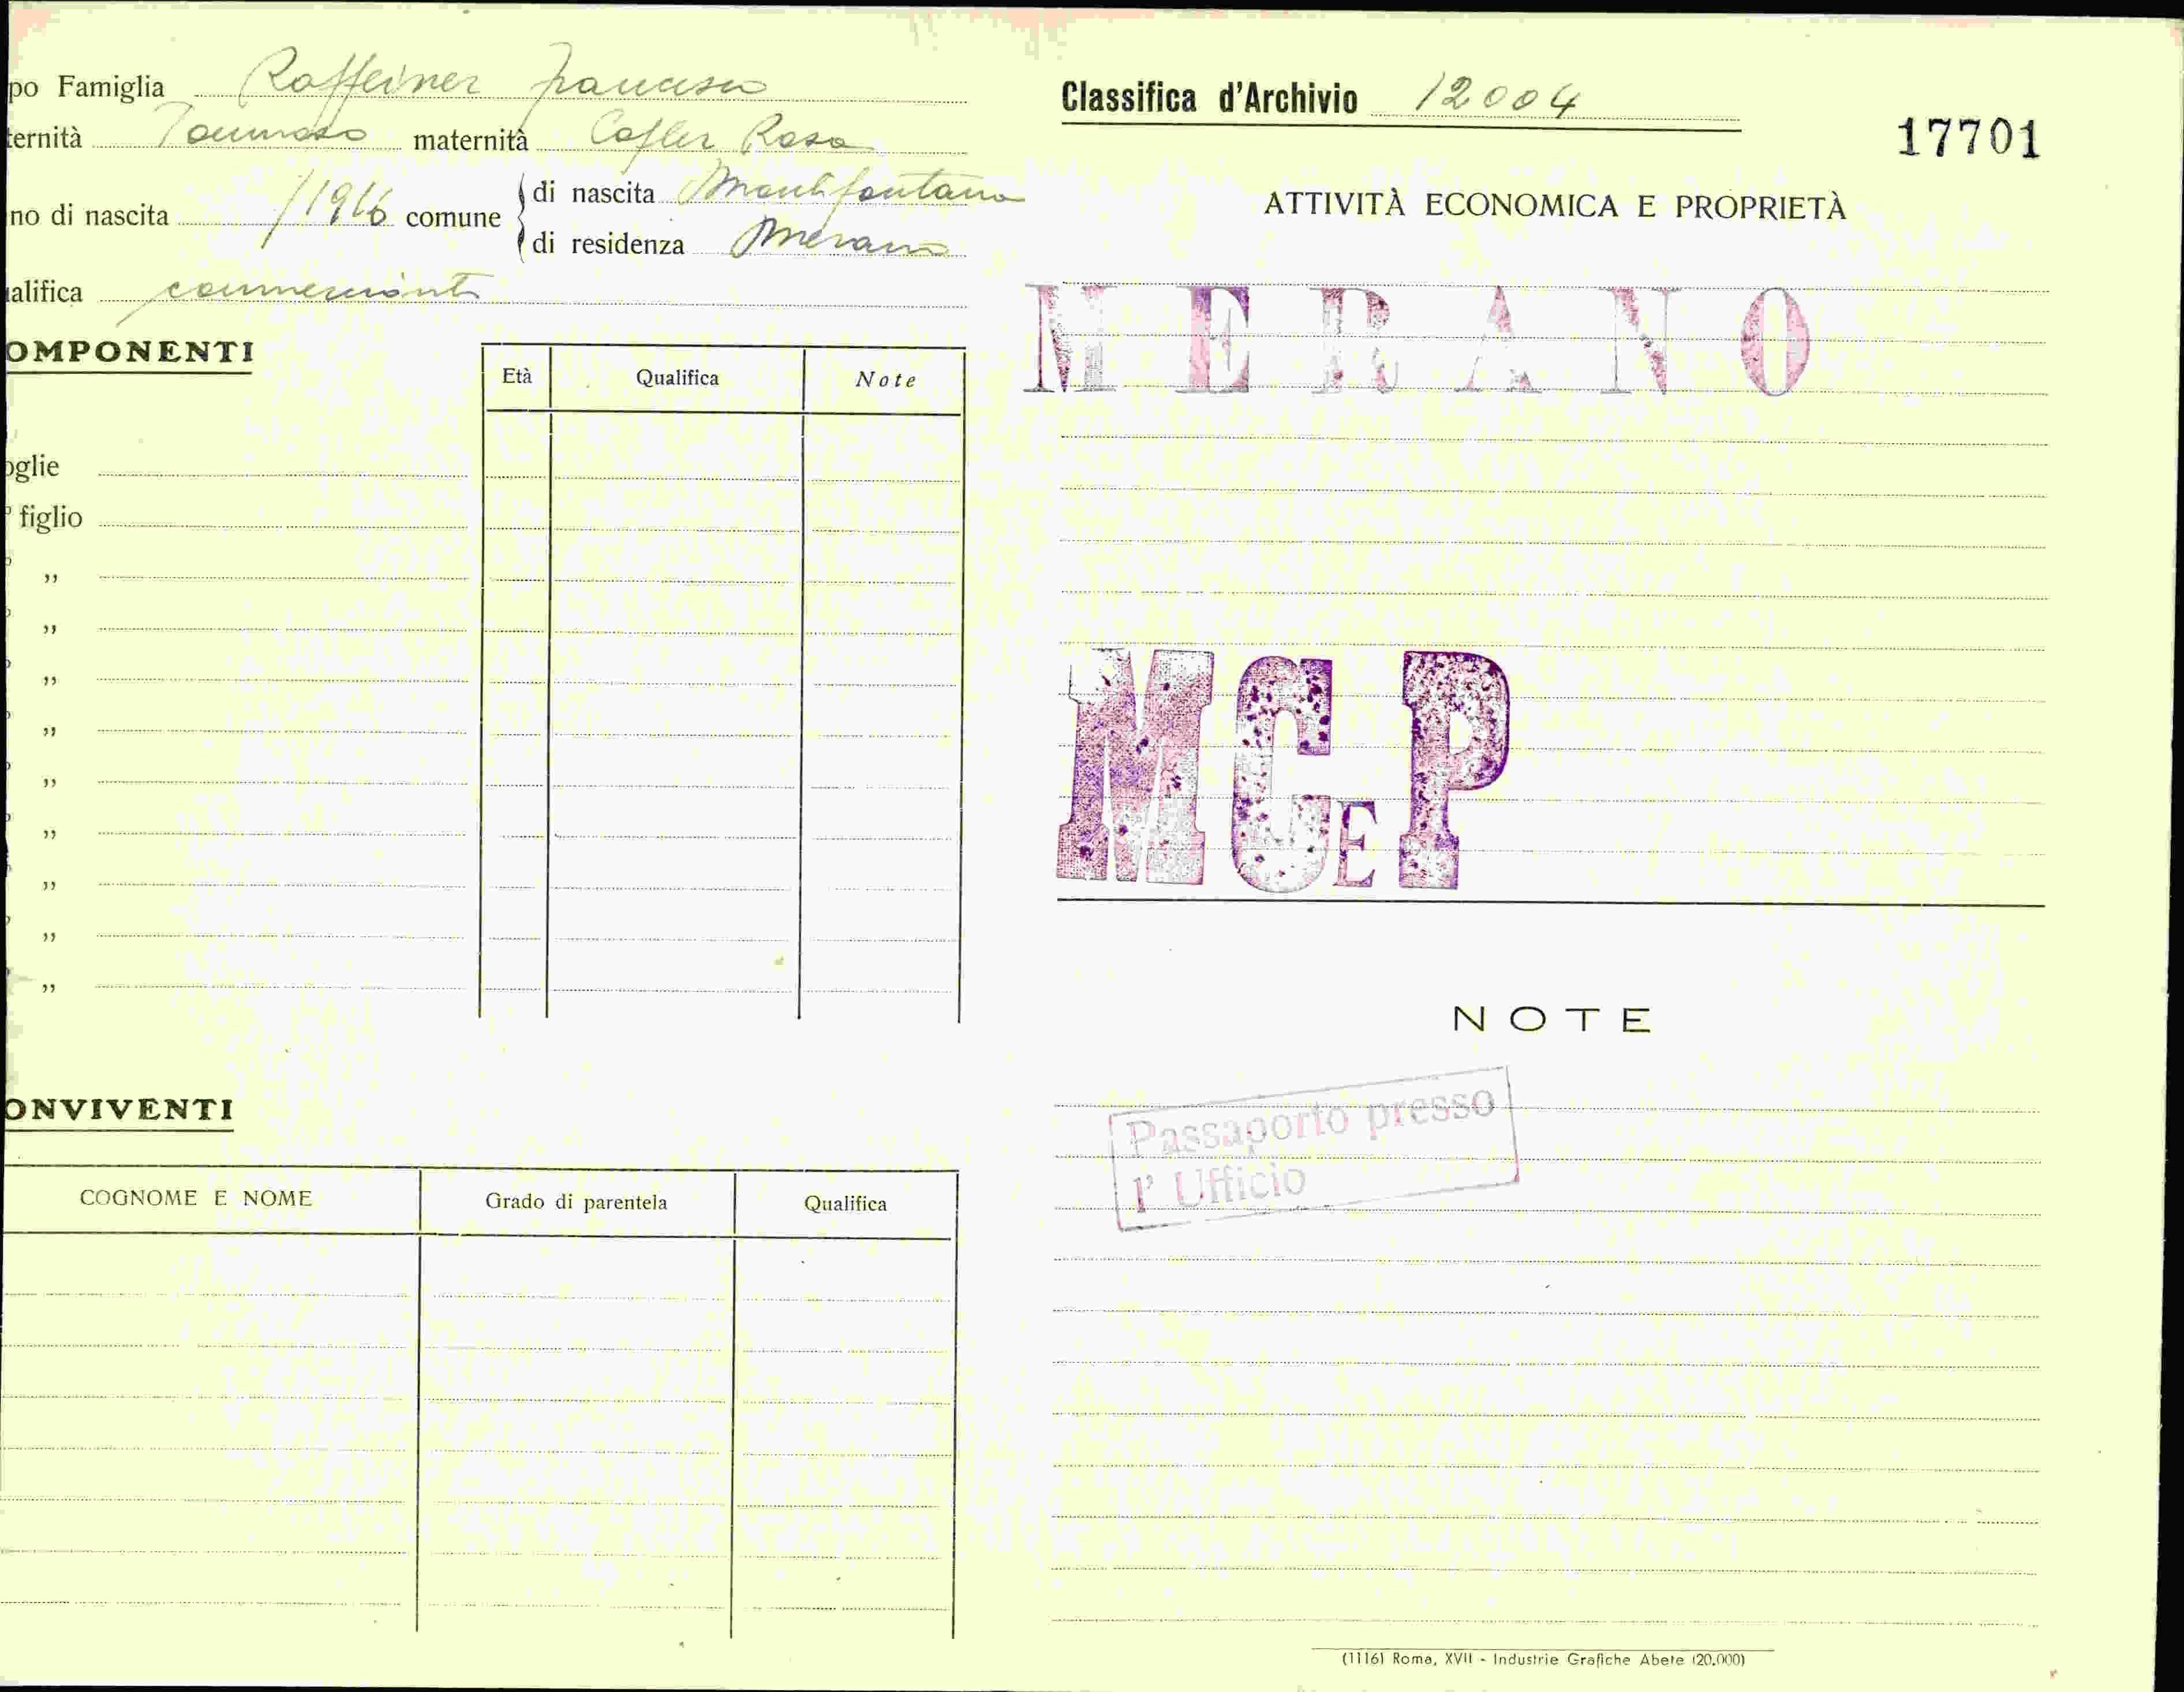 po Famiglia Raffeiner Francesco
ternità Tommaso maternità Cofler Rosa
no di nascita /1916 comune di nascita Montefontana
di residenza Merano
alifica commerciante
OMPONENTI
Età Qualifica Note
oglie
figlio
"
"
"
"
"
"
"
"
"
ONVIVENTI
COGNOME E NOME Grado di parentela Qualifica
Classifica d'Archivio 12004
17701
ATTIVITÀ ECONOMICA E PROPRIETÀ
MERANO
MCEP
NOTE
Passaporto presso
l' Ufficio
(1116) Roma, XVII - Industrie Grafiche Abete (20.000)